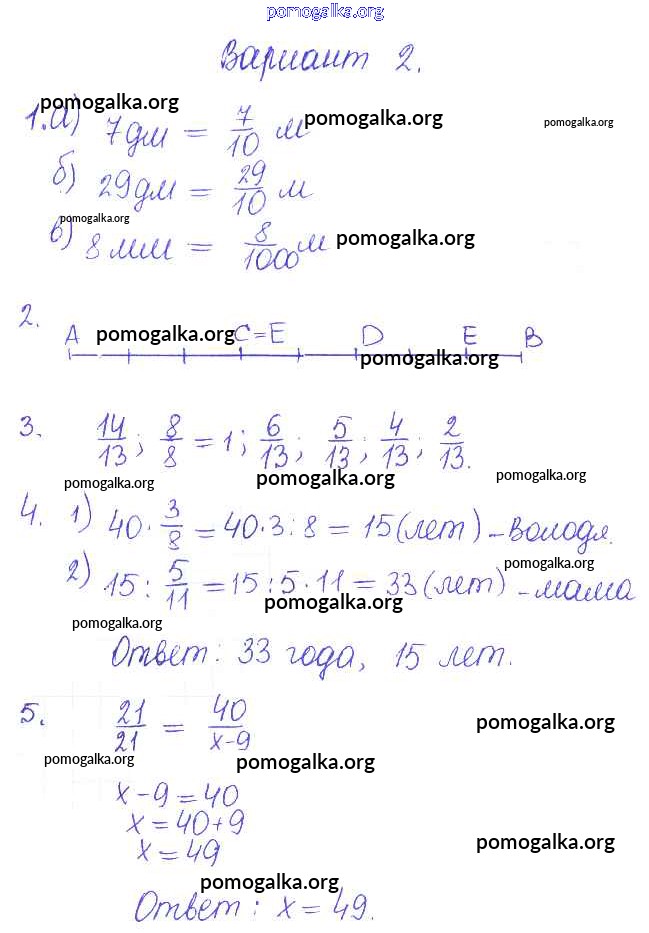 pomogalka.org
Вариант 2.
pomogalka.org
1. а) 7 дм = 7/10 м pomogalka.org pomogalka.org
б) 29 дм = 29/10 м
pomogalka.org
в) 8 мм = 8/1000 м pomogalka.org
2.
A pomogalka.org C=E D E B
pomogalka.org
3. 14/13; 8/8 = 1; 6/13; 5/13; 4/13; 2/13.
pomogalka.org pomogalka.org pomogalka.org
4. 1) 40 · 3/8 = 40·3:8 = 15 (лет) – Володя.
pomogalka.org
2) 15 : 5/11 = 15:5·11 = 33 (лет) – мама
pomogalka.org
pomogalka.org
Ответ: 33 года, 15 лет.
5. 21/21 = 40/x-9 pomogalka.org
pomogalka.org pomogalka.org
x-9=40
x=40+9
x=49 pomogalka.org
pomogalka.org
Ответ: x=49.